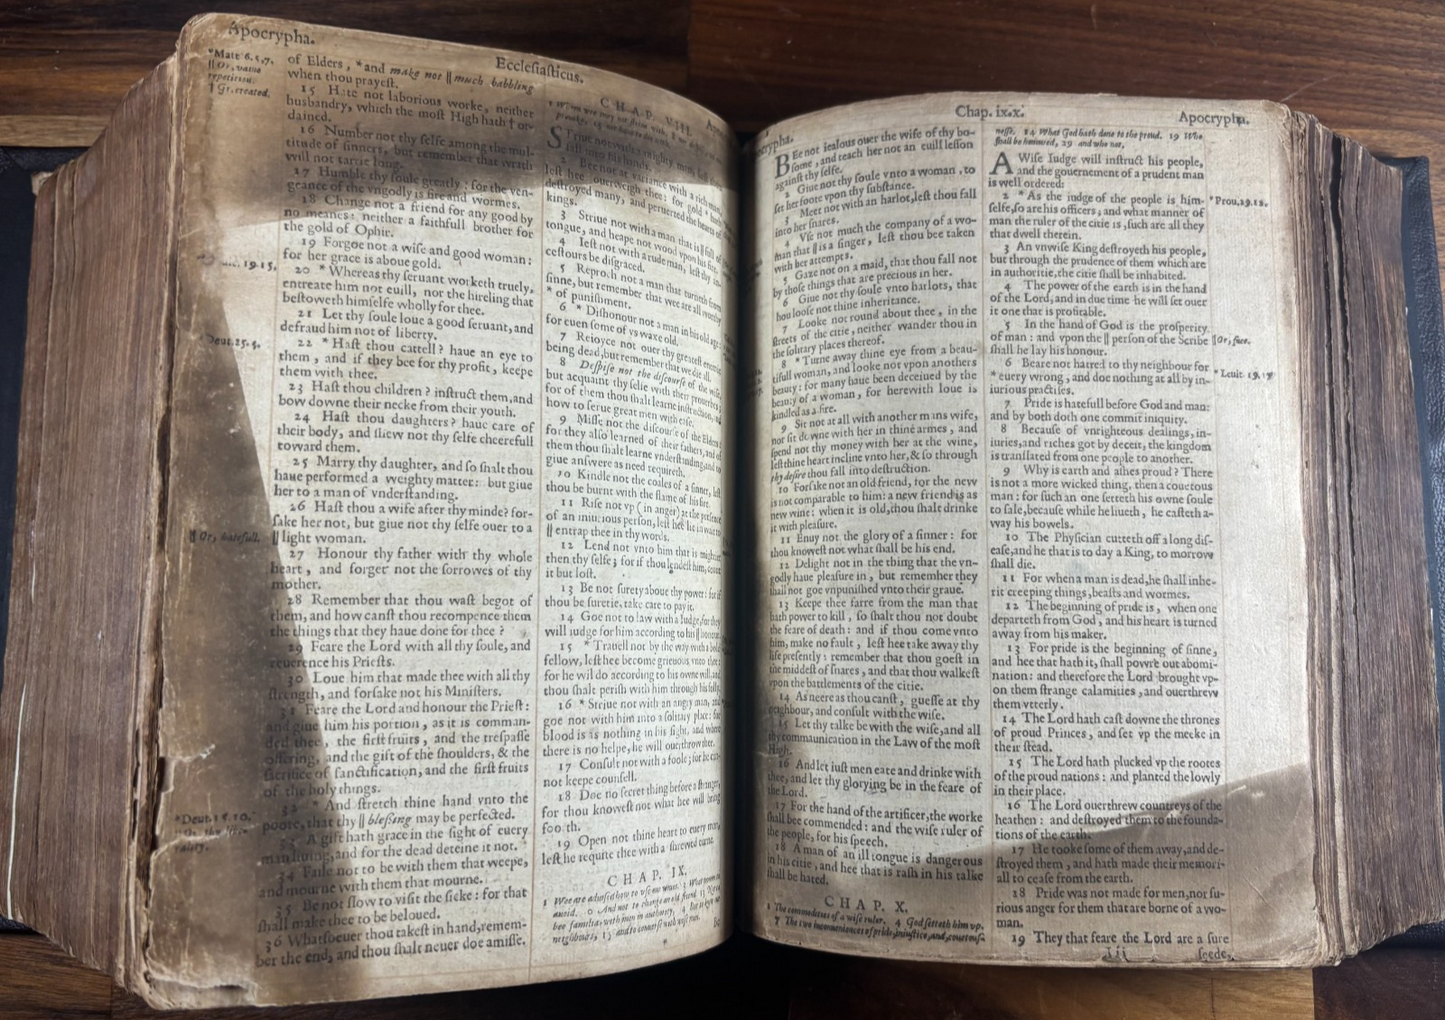 Apocrypha.
Ecclesiasticus.
*Matt.6.5,7.
|| Or, vaine
repetition.
† Gr.created.
of Elders, *and make not || much babbling
when thou prayest.
15 Hate not laborious worke, neither
husbandry, which the most High hath † or-
dained.
16 Number not thy selfe among the mul-
titude of sinners, but remember that wrath
will not tarrie long.
17 Humble thy soule greatly : for the ven-
geance of the vngodly is fire and wormes.
18 Change not a friend for any good by
no meanes: neither a faithfull brother for
the gold of Ophir.
19 Forgoe not a wise and good woman:
for her grace is aboue gold.
19.15.
20 * Whereas thy seruant worketh truely,
entreate him not euill, nor the hireling that
bestoweth himselfe wholly for thee.
21 Let thy soule loue a good seruant, and
defraud him not of liberty.
Deut.25.4.
22 * Hast thou cattell ? haue an eye to
them, and if they bee for thy profit, keepe
them with thee.
23 Hast thou children ? instruct them, and
bow downe their necke from their youth.
24 Hast thou daughters ? haue care of
their body, and shew not thy selfe cheerefull
toward them.
25 Marry thy daughter, and so shalt thou
haue performed a weighty matter: but giue
her to a man of vnderstanding.
26 Hast thou a wife after thy minde? for-
sake her not, but giue not thy selfe ouer to a
|| light woman.
|| Or, hatefull.
27 Honour thy father with thy whole
heart, and forget not the sorrowes of thy
mother.
28 Remember that thou wast begot of
them, and how canst thou recompence them
the things that they haue done for thee ?
29 Feare the Lord with all thy soule, and
reuerence his Priests.
30 Loue him that made thee with all thy
strength, and forsake not his Ministers.
31 Feare the Lord and honour the Priest:
and giue him his portion, as it is comman-
ded thee, the first fruits, and the trespasse
offering, and the gift of the shoulders, & the
sacrifice of sanctification, and the first fruits
of the holy things.
*Deut.15.10.
32 * And stretch thine hand vnto the
poore, that thy || blessing may be perfected.
33 A gift hath grace in the sight of euery
man liuing, and for the dead deteine it not.
34 Faile not to be with them that weepe,
and mourne with them that mourne.
35 Be not slow to visit the sicke : for that
shall make thee to be beloued.
36 Whatsoeuer thou takest in hand, remem-
ber the end, and thou shalt neuer doe amisse.
CHAP. VIII.
STriue not with a mighty man, lest thou
fall into his hands.
2 Bee not at variance with a rich man,
lest hee ouerweigh thee: for gold * hath
destroyed many, and peruerted the hearts of
kings.
3 Striue not with a man that is || full of
tongue, and heape not wood vpon his fire.
4 Iest not with a rude man, lest thy an-
cestours be disgraced.
5 Reproch not a man that turneth from
sinne, but remember that wee are all worthy
* of punishment.
6 * Dishonour not a man in his old age:
for euen some of vs waxe old.
7 Reioyce not ouer thy greatest enemie
being dead, but remember that we die all.
8 Despise not the discourse of the wise,
but acquaint thy selfe with their prouerbs;
for of them thou shalt learne instruction, and
how to serue great men with ease.
9 Misse not the discourse of the Elders:
for they also learned of their fathers, and of
them thou shalt learne vnderstanding, and to
giue answere as need requireth.
10 Kindle not the coales of a sinner, lest
thou be burnt with the flame of his fire.
11 Rise not vp (in anger) at the presence
of an iniurious person, lest hee lie in wait to
|| entrap thee in thy words.
12 Lend not vnto him that is mightier
then thy selfe; for if thou lendest him, count
it but lost.
13 Be not surety aboue thy power: for if
thou be suretie, take care to pay it.
14 Goe not to law with a Iudge, for they
will iudge for him according to his || honour.
15 * Trauell not by the way with a bold
fellow, lest hee become grieuous vnto thee:
for he will do according to his owne will, and
thou shalt perish with him through his folly.
16 * Striue not with an angry man, and
goe not with him into a solitary place: for
blood is as nothing in his sight, and where
there is no helpe, he will ouerthrow thee.
17 Consult not with a foole; for he can-
not keepe counsell.
18 Doe no secret thing before a stranger,
for thou knowest not what hee will bring
foorth.
19 Open not thine heart to euery man,
lest he requite thee with a shrewd turne.
CHAP. IX.
1 We are aduised how to vse our wiues. 3 What women to
auoid. 10 And not to change an old friend. 13 Not to
bee familiar with men in authority, 14 But to know our
neighbours, 15 and to conuerse with wise men.
Chap. ix.x.
Apocrypha.
BEe not iealous ouer the wife of thy bo-
some, and teach her not an euill lesson
against thy selfe.
2 Giue not thy soule vnto a woman, to
set her foote vpon thy substance.
3 Meet not with an harlot, lest thou fall
into her snares.
4 Vse not much the company of a wo-
man that || is a singer, lest thou bee taken
with her attempts.
5 Gaze not on a maid, that thou fall not
by those things that are precious in her.
6 Giue not thy soule vnto harlots, that
thou loose not thine inheritance.
7 Looke not round about thee, in the
streets of the citie, neither wander thou in
the solitary places thereof.
8 * Turne away thine eye from a beau-
tifull woman, and looke not vpon anothers
beauty: for many haue been deceiued by the
beauty of a woman, for herewith loue is
kindled as a fire.
9 Sit not at all with another mans wife,
nor sit downe with her in thine armes, and
spend not thy money with her at the wine,
lest thine heart incline vnto her, & so through
thy desire thou fall into destruction.
10 Forsake not an old friend, for the new
is not comparable to him: a new friend is as
new wine: when it is old, thou shalt drinke
it with pleasure.
11 Enuy not the glory of a sinner : for
thou knowest not what shall be his end.
12 Delight not in the thing that the vn-
godly haue pleasure in, but remember they
shall not goe vnpunished vnto their graue.
13 Keepe thee farre from the man that
hath power to kill, so shalt thou not doubt
the feare of death: and if thou come vnto
him, make no fault, lest hee take away thy
life presently: remember that thou goest in
the middest of snares, and that thou walkest
vpon the battlements of the citie.
14 As neere as thou canst, guesse at thy
neighbour, and consult with the wise.
15 Let thy talke be with the wise, and all
thy communication in the Law of the most
High.
16 And let iust men eate and drinke with
thee, and let thy glorying be in the feare of
the Lord.
17 For the hand of the artificer, the worke
shall bee commended: and the wise ruler of
the people, for his speech.
18 A man of an ill tongue is dangerous
in his citie, and hee that is rash in his talke
shall be hated.
CHAP. X.
1 The commodities of a wise ruler. 4 God setteth him vp.
7 The inconueniences of pride, iniustice, and couetous-
nesse. 14 What God hath done to the proud. 19 Who
shall be honoured, 29 and who not.
A Wise Iudge will instruct his people,
and the gouernement of a prudent man
is well ordered:
2 * As the iudge of the people is him-
selfe, so are his officers; and what manner of
man the ruler of the citie is, such are all they
that dwell therein.
*Prou.29.12.
3 An vnwise King destroyeth his people,
but through the prudence of them which are
in authoritie, the citie shall be inhabited.
4 The power of the earth is in the hand
of the Lord, and in due time he will set ouer
it one that is profitable.
5 In the hand of God is the prosperity
of man : and vpon the || person of the Scribe
shall he lay his honour.
|| Or, face.
6 Beare not hatred to thy neighbour for
* euery wrong, and doe nothing at all by in-
iurious practises.
* Leuit. 19.17
7 Pride is hatefull before God and man:
and by both doth one commit iniquity.
8 Because of vnrighteous dealings, in-
iuries, and riches got by deceit, the kingdom
is translated from one people to another.
9 Why is earth and ashes proud? There
is not a more wicked thing, then a couetous
man: for such an one setteth his owne soule
to sale, because while he liueth, he casteth a-
way his bowels.
10 The Physician cutteth off a long dis-
ease, and he that is to day a King, to morrow
shall die.
11 For when a man is dead, he shall inhe-
rit creeping things, beasts and wormes.
12 The beginning of pride is, when one
departeth from God, and his heart is turned
away from his maker.
13 For pride is the beginning of sinne,
and hee that hath it, shall powre out abomi-
nation: and therefore the Lord brought vp-
on them strange calamities, and ouerthrew
them vtterly.
14 The Lord hath cast downe the thrones
of proud Princes, and set vp the meeke in
their stead.
15 The Lord hath plucked vp the rootes
of the proud nations : and planted the lowly
in their place.
16 The Lord ouerthrew countreys of the
heathen : and destroyed them to the founda-
tions of the earth.
17 He tooke some of them away, and de-
stroyed them, and hath made their memori-
all to cease from the earth.
18 Pride was not made for men, nor fu-
rious anger for them that are borne of a wo-
man.
19 They that feare the Lord are a sure
seede,